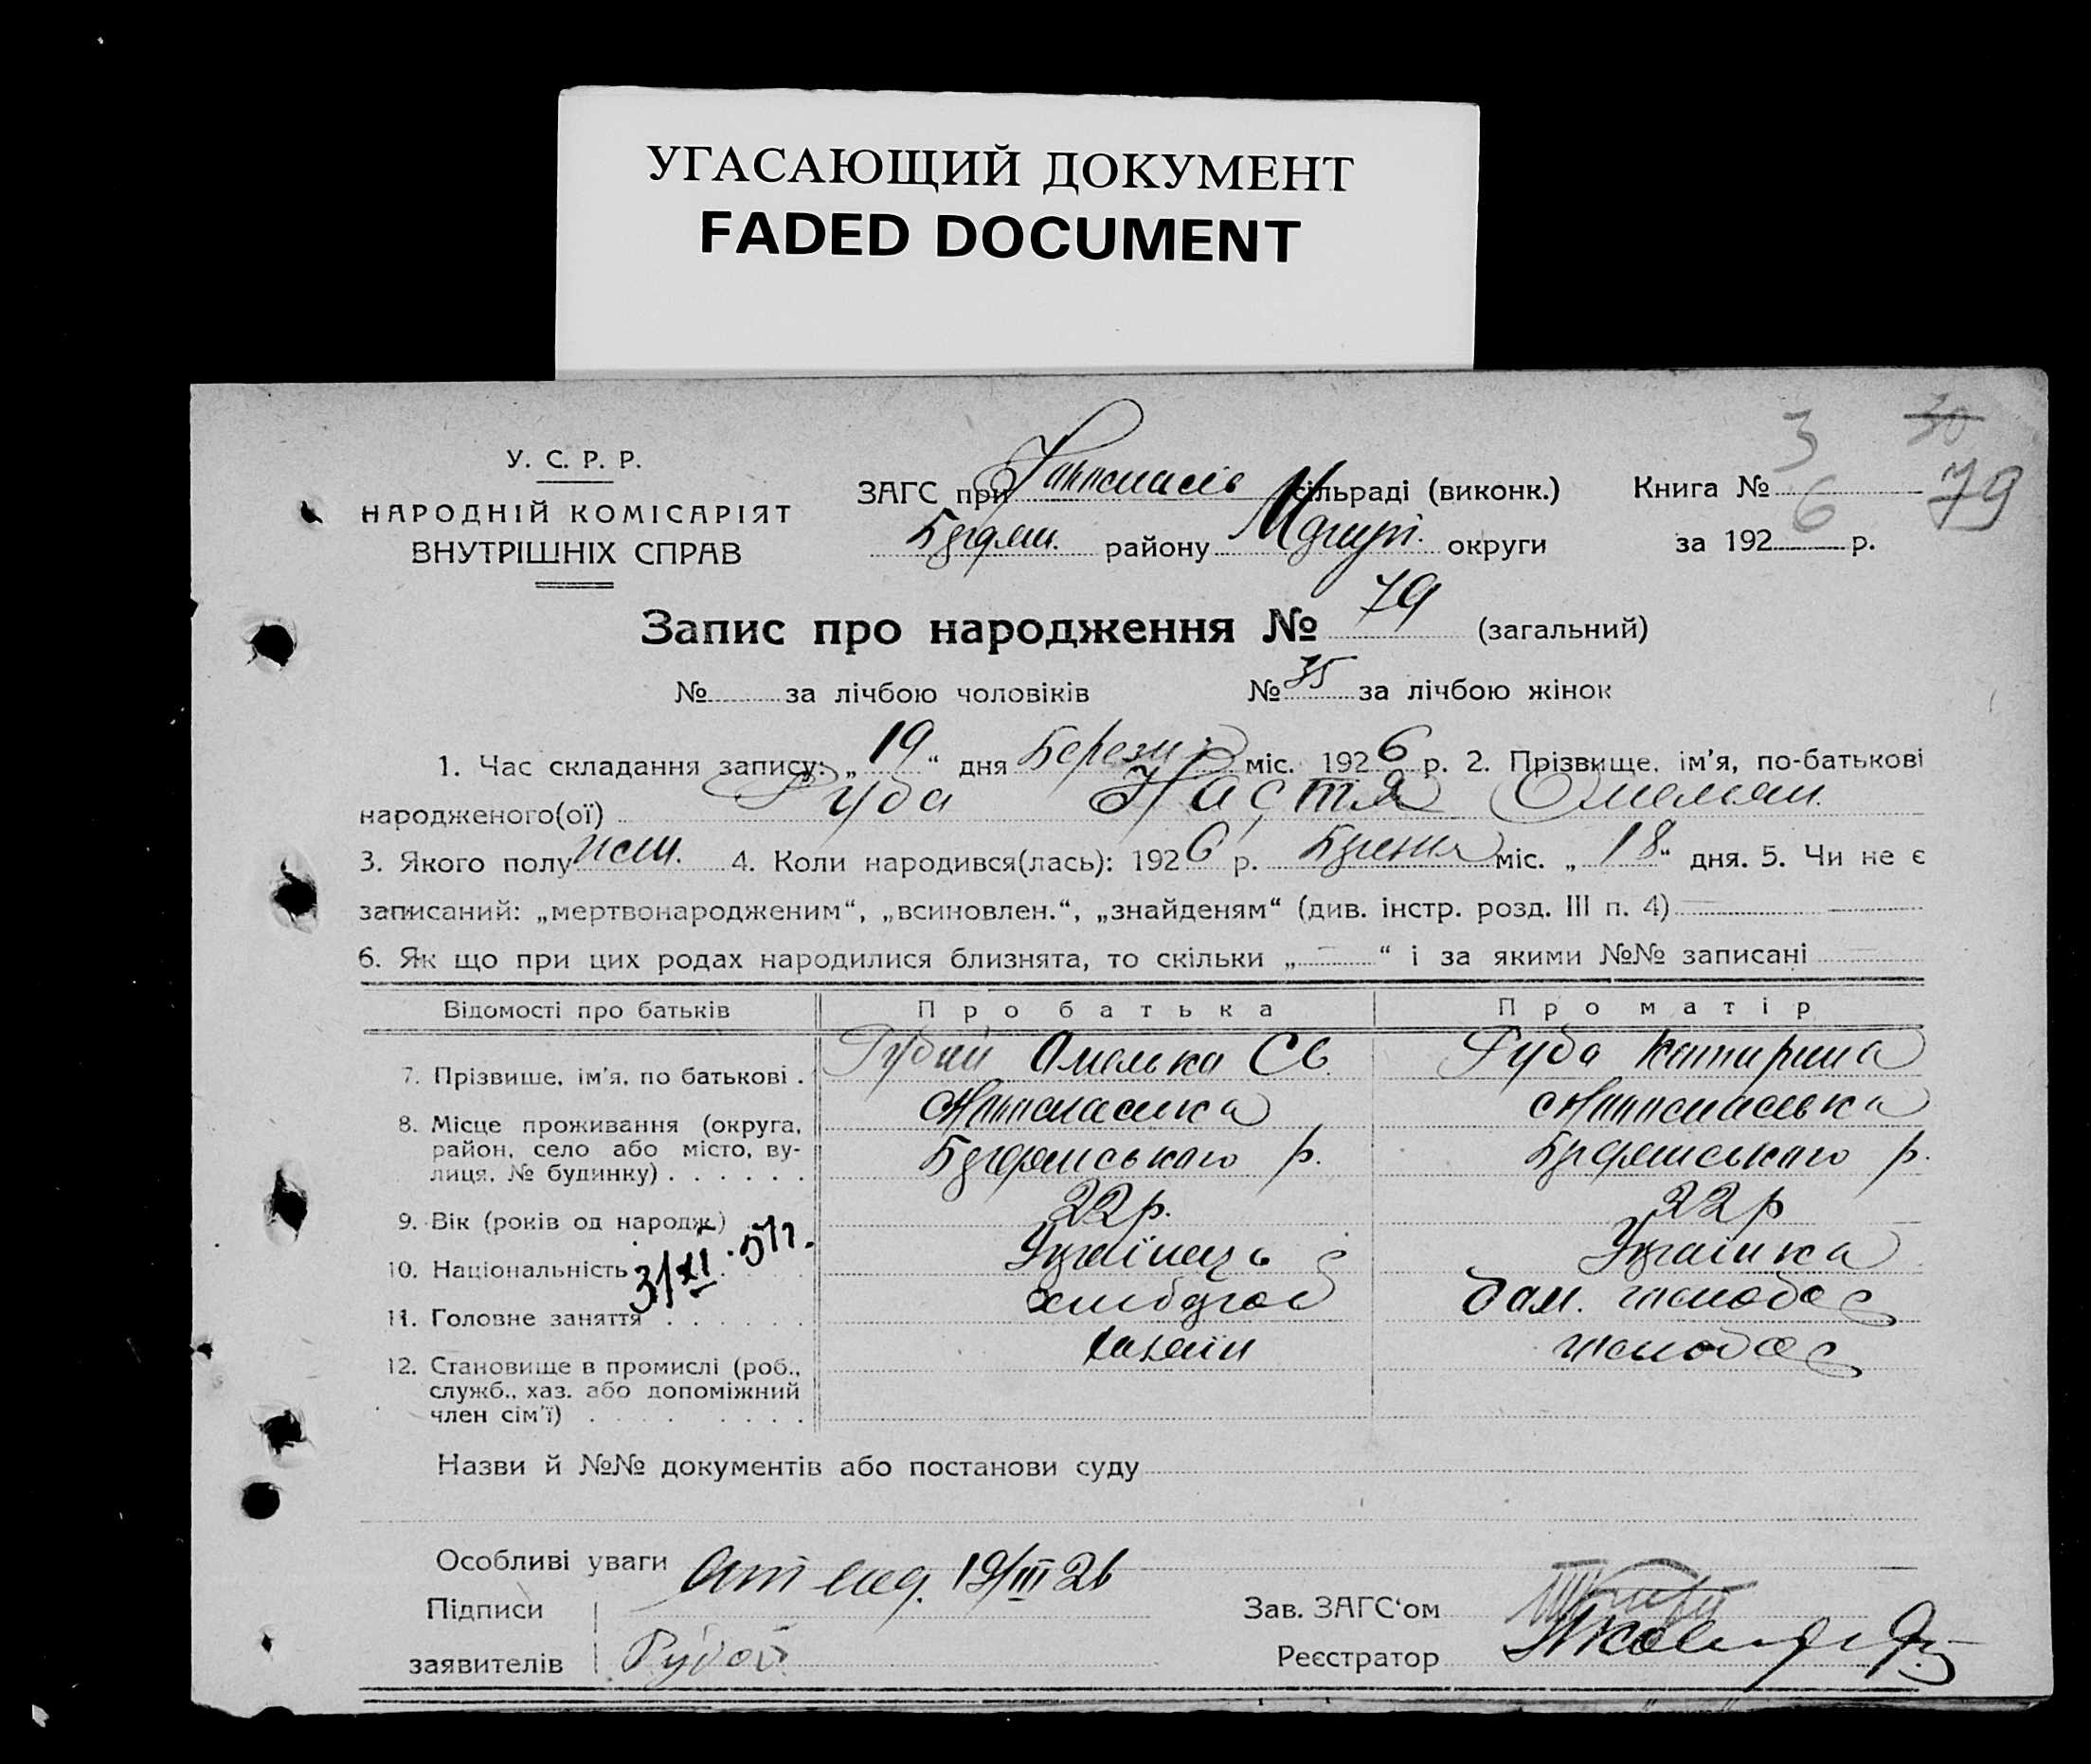 УГАСАЮЩИЙ ДОКУМЕНТ
FADED DOCUMENT
У. С. Р. Р.
НАРОДНІЙ КОМІСАРІЯТ
ВНУТРІШНІХ СПРАВ
ЗАГС при сільраді (виконк.)
району округи
Книга № 3
за 192 6 р.
30
79
Запис про народження № 79 (загальний)
№ за лічбою чоловіків № 35 за лічбою жінок
1. Час складання запису: „ 19 “ дня Березня міс. 192 6 р. 2. Прізвище, ім'я, по-батькові
народженого(ої) Руба Настя Омельян.
3. Якого полу жін. 4. Коли народився(лась): 192 6 р. міс. „ 18 “ дня. 5. Чи не є
записаний: „мертвонародженим“, „всиновлен.“, „знайденям“ (див. інстр. розд. III п. 4)
6. Як що при цих родах народилися близнята, то скільки „ “ і за якими №№ записані
Відомості про батьків Про батька Про матір
7. Прізвише, ім'я, по батькові . Рубий Омелько Св. Руба Катирина
8. Місце проживання (округа,
район, село або місто, ву-
лиця, № будинку) . . . . . .
9. Вік (років од народж.) 22 р. 22 р
10. Національність Українець Українка
31/XI 57р.
11. Головне заняття . . . . . . хлібороб дом.
12. Становище в промислі (роб.,
служб., хаз. або допоміжний
член сім'ї) . . . . . . . . хазяїн
Назви й №№ документів або постанови суду
Особливі уваги 19/III 26
Підписи
заявителів Рубой
Зав. ЗАГС‘ом
Реєстратор